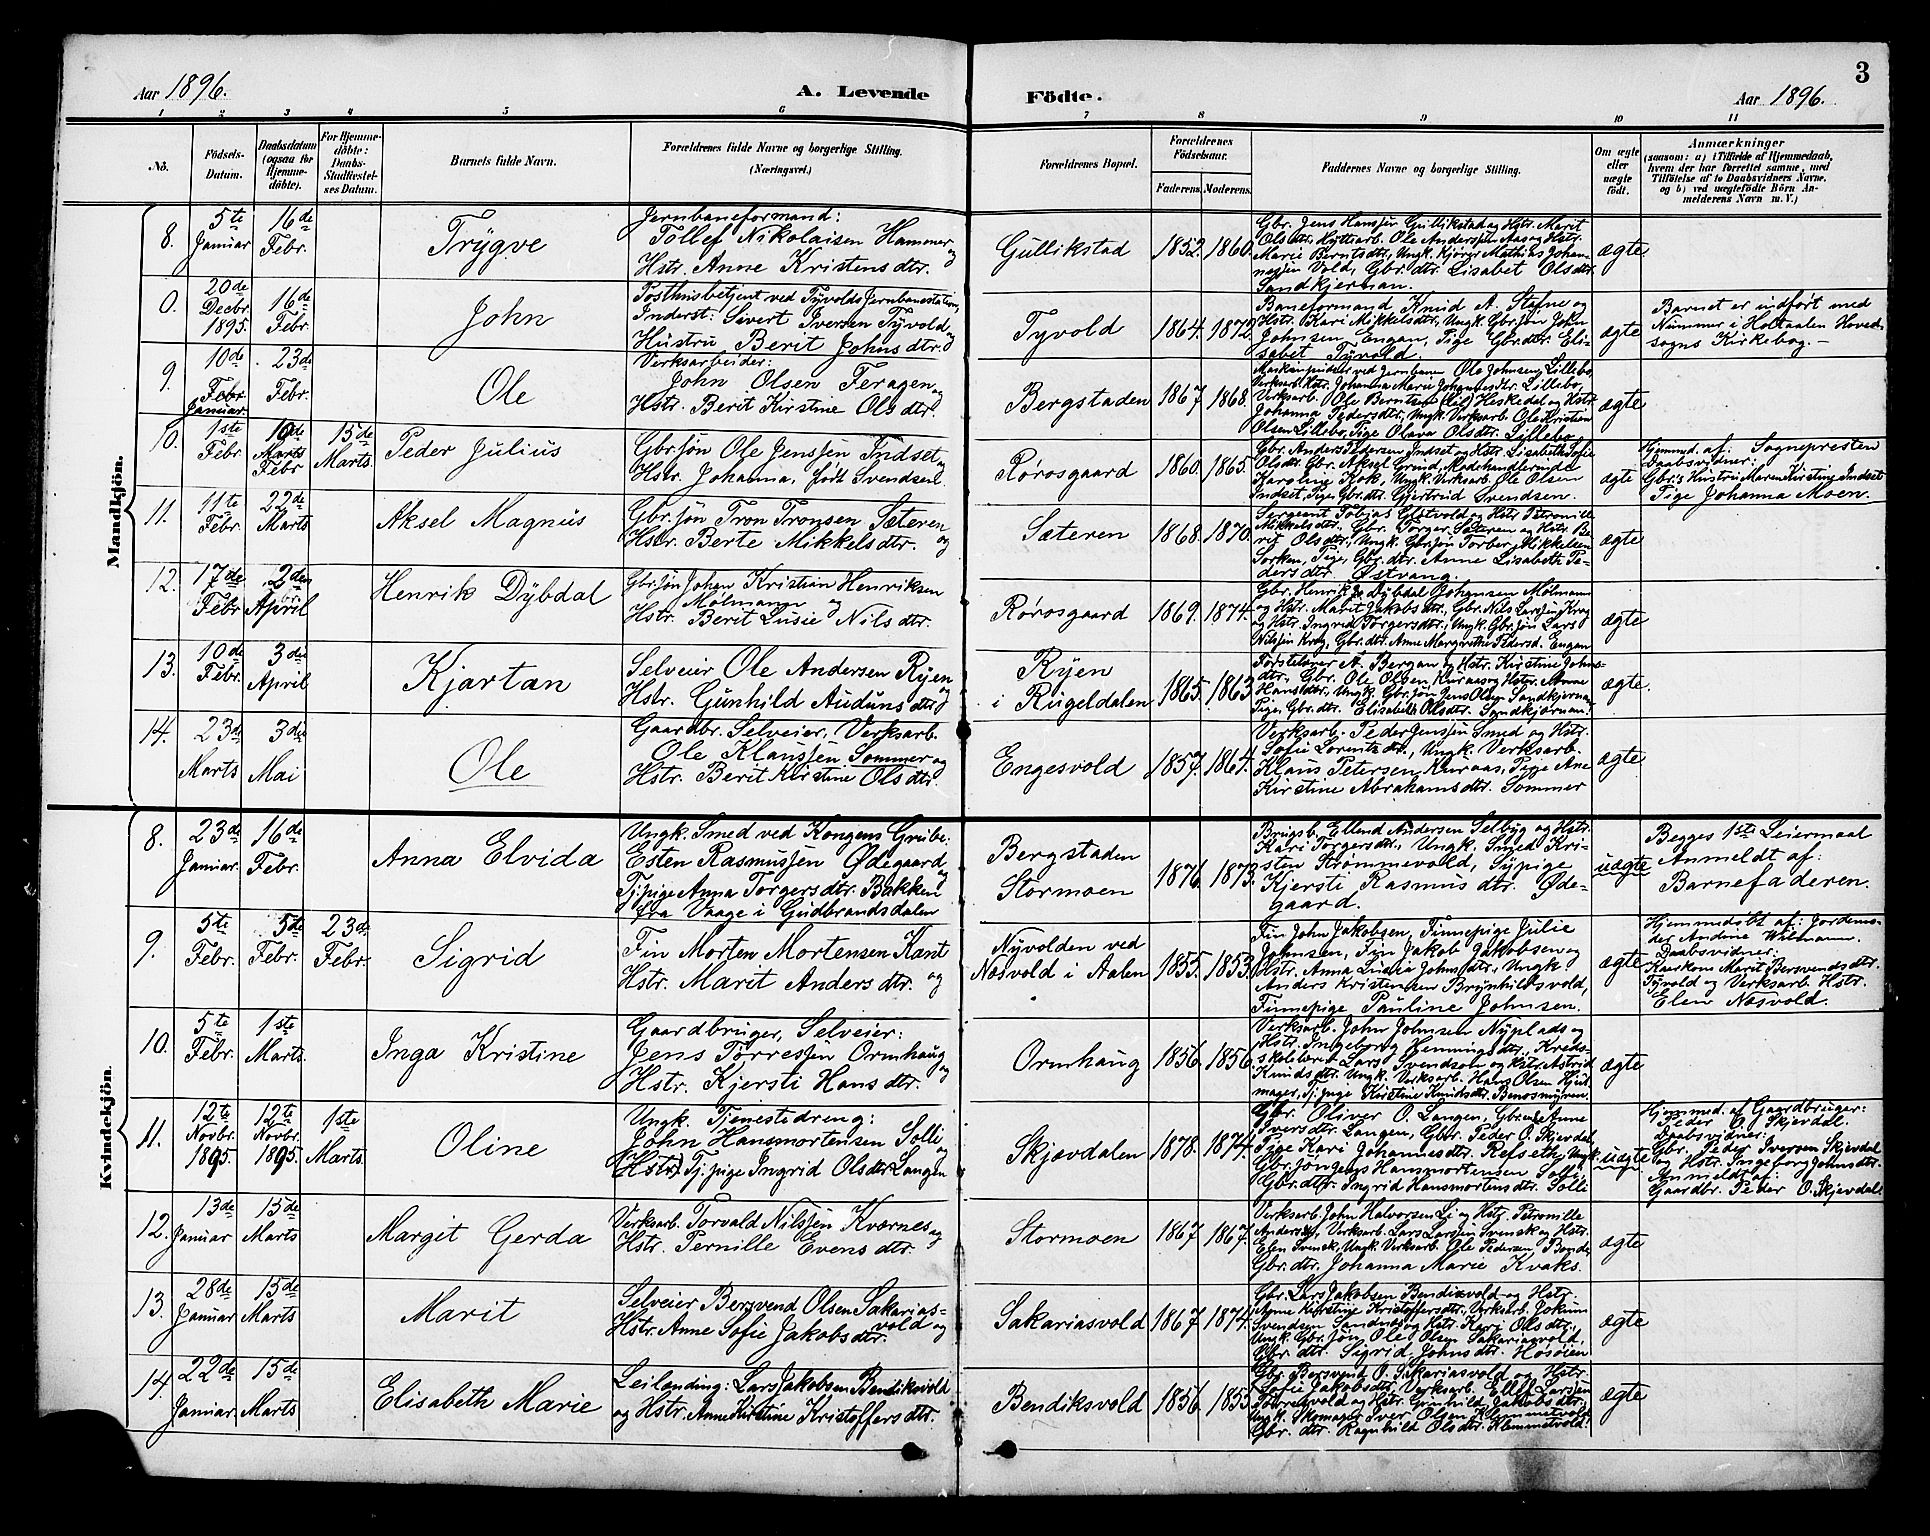 Aar 1896.
A. Levende Födte.
Aar 1896.
3
1 2 3 4 5 6 7 8 9 10 11
No.
Födsels-Datum.
Daabsdatum (ogsaa for Hjemme-döbte).
For Hjemme-döbte: Daabs-Stadfæstel-ses Datum.
Barnets fulde Navn.
Forældrenes fulde Navne og borgerlige Stilling. (Næringsvei.)
Forældrenes Bopæl.
Forældrenes Födselsaar.
Faderens. Moderens.
Faddernes Navne og borgerlige Stilling.
Om ægte eller uægte födt.
Anmærkninger
(saasom: a) i Tilfælde af Hjemmedaab, hvem der har forrettet samme, med Tilföielse af to Daabsvidners Navne, og b) ved uægtefödte Börn An-melderens Navn m. V.)
Mandkjön.
8.
5te Januar
16de Febr.
Trygve
Jernbaneformand:
Tollef Nikolaisen Hammer og
Hstr. Anne Kristensdtr.
Gullikstad
1852. 1860.
Gbr. Jens Hansen Gullikstad og Hstr. Marit
Olsdtr., Hytteárb. Ole Andersen Aas og Hstr.
Marie Berntsdtr., Ungk. Kjörer Mathias Johan-
nesen Vold, Gbr.dtr. Lisabet Olsdtr.
Sandkjernan.
ægte
0.
20de Decbr. 1895.
16de Febr.
John
Posthusbetjent ved Tyvolds Jernbanestation,
Inderst: Sivert Iversen Tyvold og
Hustru Berit Johnsdtr.
Tyvold
1864. 1872.
Baneformand Knud A. Stafne og
Hstr. Kari Mikkelsdtr., Ungk. Gbr.søn John
Johnsen Engan, Pige Gbr.dtr. Eli-
sabet Tyvold.
ægte
Barnet er indfört med
Nummer i Holtaalen Hoved-
sogns Kirkebog.-
9.
10de Febr. Januar.
23de Febr.
Ole
Verksarbeider:
John Olsen Feragen og
Hstr. Berit Kirstine Olsdtr.
Bergstaden
1867. 1868.
Maskinpudser ved Jernbanen Ole Johnsen Lillebo,
Verksarb. Hstr. Johanna Marie Johannesdtr. Lillebo,
Verksarb. Ole Berntsen Heskedal og Hstr.
Johanna Pedersdtr., Ungk. Verksarb. Ole Kristian
Olsen Lillebo, Pige Olava Olsdtr. Lillebo.
ægte
10.
1ste Febr
Marts Febr
15de Marts.
Peder Julius
Gbr.søn Ole Jenssen Indset og
Hstr. Johanna, født Svendsen.
Rørosgaard
1860. 1865.
Gbr. Anders Pedersen Indset og Hstr. Lisabeth Sofie
Olsdtr., Gbr. Aksel Grind, Modehandlerinde
Karoline Kok, Ungk. Verksarb. Ole Olsen
Indset, Pige Gbr.dtr. Gjertrud Svendsen.
ægte
Hjemmd. af: Sognepresten
Daabsvidner:
Gbr.s Hustru Maren Kirstine Indset
Pige Johanna Moen.
11.
11te Febr.
22de Marts
Aksel Magnus
Gbr.søn Tron Tronsen Sæteren og
Hstr. Berte Mikkelsdtr.
Sæteren
1868. 1870.
Sergeant Tobias Galstvold og Hstr. Petronille
Mikkelsdtr., Gbr. Torger Sæteren og Hstr. Be-
rit Olsdtr., Ungk. Gbr.søn Torber Mikkelsen
Sorken, Pige, Gbr.dtr. Anne Lisabeth Pe-
dersdtr. Østvang.
ægte
12.
17de Febr
2den April
Henrik Dybdal
Gbr.søn Johan Kristian Henriksen
Mølmann og
Hstr. Berit Lusie Nilsdtr.
Rørosgaard
1869. 1874.
Gbr. Henrik Dybdal Johansen Mølmann
og Hstr. Marit Jakobsdtr., Gbr. Nils Larssen Krog
og Hstr. Ingrid Torgersdtr., Ungk. Gbr.søn Lars
Nilssen Krog, Gbr.dtr. Anne Margrethe Pedersd. Engan
ægte
13.
10de Febr.
3die April
Kjartan
Selveier Ole Andersen Ryen og
Hstr. Gunhild Audunsdtr.
Ryen
i Rugeldalen
1865. 1863
Førstelærer A. Bergan og Hstr. Kirstine Johns-
dtr., Gbr. Ole Olsen Kuraas og Hstr. Anne
Hansdtr., Ungk. Gbr.søn Jens Olsen Sandkjernan,
Pige, Gbr.dtr. Elisabeth Olsdtr. Sandkjernan.
ægte.
14.
23de Marts
3die Mai
Ole
Gaardbr. Selveier, Verksarb.
Ole Klaussen Sommer og
Hstr. Berit Kirstine Olsdtr.
Engesvold
1857. 1864.
Verksarb. Peder Jenssen Smed og Hstr.
Sofie Lorentzdtr., Ungk. Verksarb.
Klaus Petersen Kuraas, Pige Ane
Kirstine Abrahamsdtr. Sommer
ægte
Kvindekjön.
8.
23de Januar.
16de Febr.
Anna Elvida
Ungk. Smed ved Kongens Grube:
Esten Rasmussen Ødegaard og
Tj.pige Anna Torgersdtr. Bakken
fra Vaage i Gudbrandsdalen
Bergstaden
Stormoen
1876. 1873.
Brugsb. Ellend Andersen Selbyg og Hstr.
Kari Torgersdtr., Ungk. Smed Kri-
sten Strømmevold, Sypige
Kjersti Rasmusdtr. Øde-
gaard.
uægte
Begges 1ste Leiermaal
Anmeldt af:
Barnefaderen.
9.
5te Febr.
5te Febr.
23de Febr.
Sigrid
Fin Morten Mortensen Kant og
Hstr. Marit Andersdtr.
Nyvolden ved
Nosvold i Aalen
1855. 1853.
Fin John Jakobsen, Finnepige Julie
Johnsen, Fin Jakob Jakobsen og
Hstr. Anna Lusia Johnsdtr., Ungk.
Anders Kristensen Brynhildsvold,
Finnepige Pauline Johnsen.
ægte
Hjemmedöbt af: Jordemo-
der Andine Wiemann.
Daabsvidner:
Kaarkone Marit Bersvendsdtr.
Tyvold og Verksarb. Hstr.
Elen Nosvold.
10.
5te Febr.
1ste Marts.
Inga Kristine
Gaardbruger, Selveier:
Jens Torressen Ormhaug og
Hstr. Kjersti Hansdtr.
Ormhaug
1856. 1856.
Verksarb. John Johnsen Nyplads og
Hstr. Ingeborg Henningsdtr., Kreds-
skolelærer Lars Svendsen og Hstr. Astrid
Knudsdtr., Ungk. Verksarb. Hans Olsen Hjul-
mager, Tj.pige Kirstine Knudsdtr. Benosmyren.
ægte
11.
12te Novbr. 1895.
12te Novbr. 1895.
1ste Marts.
Oline
Ungk. Tjenestedreng:
John Hansmortensen Solli og
(Hstr.) Tj.pige Ingrid Olsdtr. Langen
Skjævdalen
1878. 1874.
Gbr. Oliver O. Langen, Gbr.enke Anne
Iversdtr. Langen, Gbr. Peder O. Skjevdal
Pige Kari Johannesdtr. Refseth, Ungk.
Gbr.søn Jens Hansmortensen Solli
Gbr.dtr. Ingrid Hansmortensdtr. Solli
uægte
Hjemmed. af Gaardbruger:
Peder O. Skjevdal.
Daabsvidner:
Gbr. Peder Iversen Skjevdal
og Hstr. Ingeborg Johnsdtr.
Anmeldt af:
Gaardbr. Peder O. Skjevdal
12.
13de Januar
15de Marts
Margit Gerda
Verksarb. Torvald Nilssen Kværnes og
Hstr. Pernille Evensdtr.
Stormoen
1867 1867.
Verksarb. John Halvorsen Li og Hstr. Petronille
Andersd., Verksarb. Lars Larssen Svensk og Hstr.
Elen Svensk, Ungk. Verksarb. Ole Pedersen, Bonde
Gbr.dtr. Johanna Marie Kvaks.
ægte
13.
28de Januar
15de Marts
Marit
Selveier Bersvend Olsen Sakarias-
vold og
Hstr. Anne Sofie Jakobsdtr.
Sakariasvold
1867 1874.
Gbr. Lars Jakobsen Bendixvold og Hstr.
Anne Kirstine Kristoffersdtr., Verksarb. Jokum
Svendsen Sandnes og Hstr. Kari Olsdtr.,
Ungk. Gbr.søn Ole Olsen Sakariasvold,
Gbr.dtr. Sigrid Johnsdtr. Hosøien
ægte
14.
22de Januar.
15de Marts
Elisabeth Marie
Leilending: Lars Jakobsen Bendiksvold
og Hstr. Anne Kirstine Kristoffersdtr.
Bendiksvold
1856 1853.
Gbr. Bersvend O. Sakariasvold og Hstr.
Sofie Jakobsdtr., Verksarb. Elling Larssen
og Hstr. Gunhild Jakobsdtr.,
Ungk. Skomager Iver Olsen Klemmetvold
Gbr.dtr. Ragnhild Olsdtr. Klemmetvold.
ægte